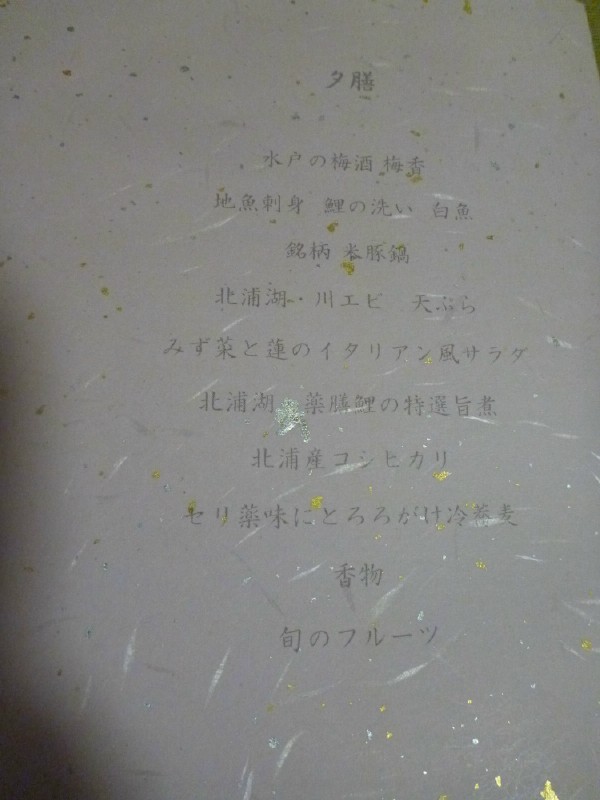 夕膳
水戸の梅酒 梅香
地魚刺身 鯉の洗い 白魚
銘柄 米豚鍋
北浦湖・川エビ 天ぷら
みず菜と蓮のイタリアン風サラダ
北浦湖 薬膳鯉の特選旨煮
北浦産コシヒカリ
セリ薬味にとろろがけ冷蕎麦
香物
旬のフルーツ